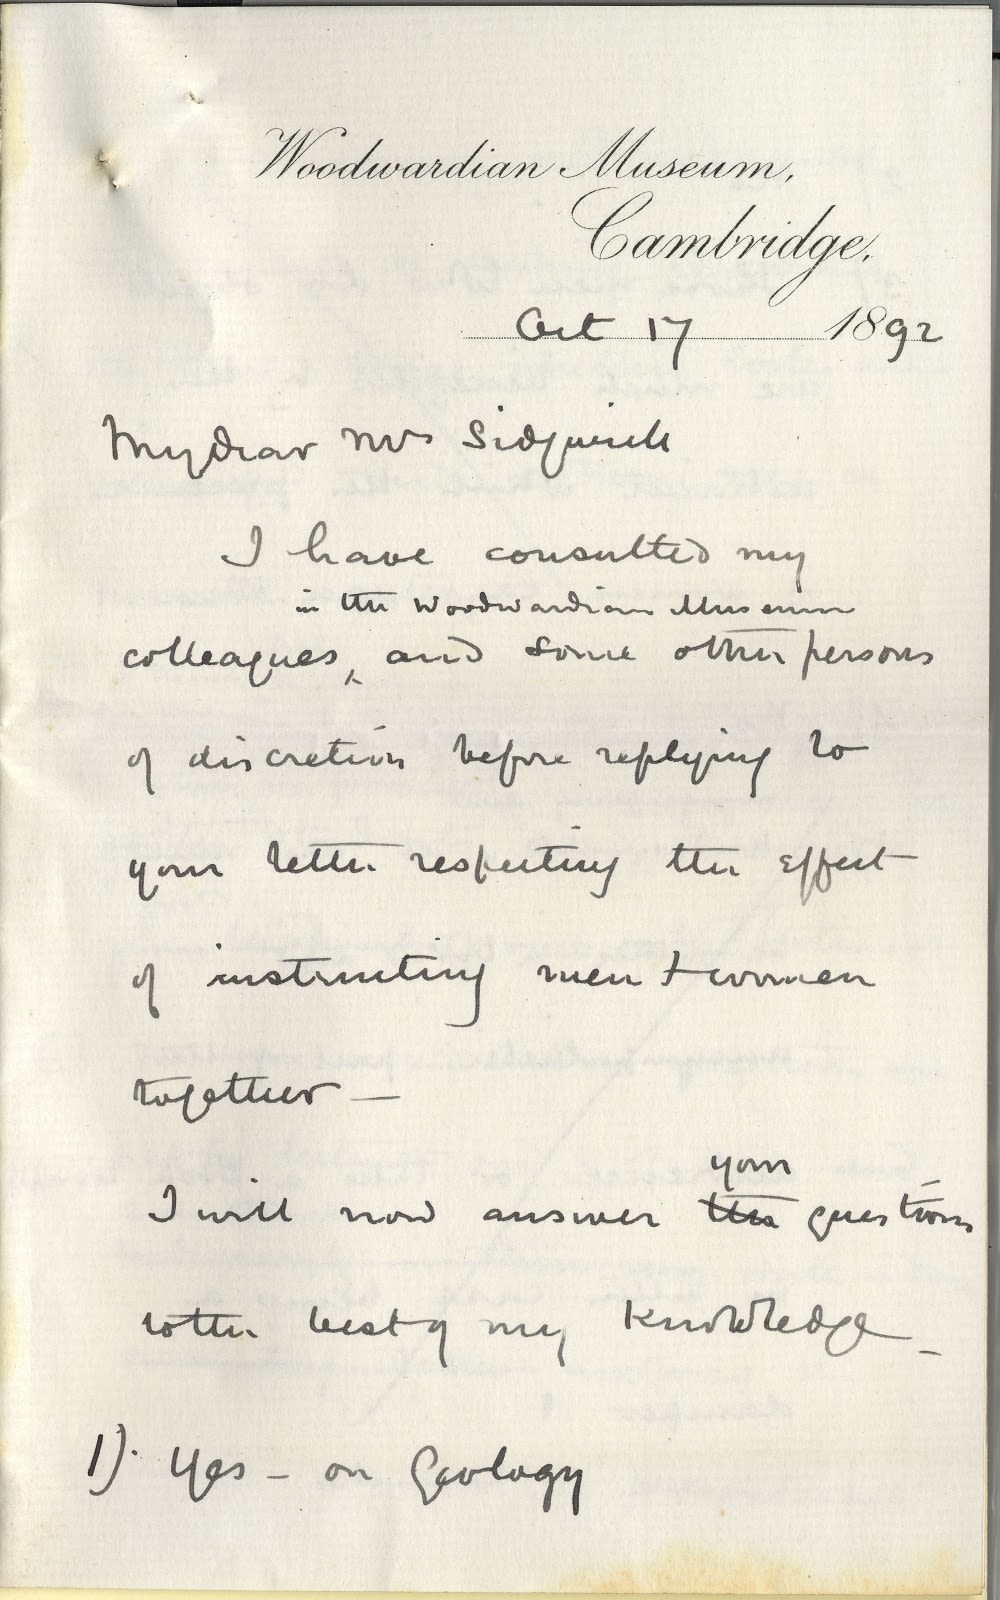 Woodwardian Museum,
Cambridge.
Oct 17 1892
My dear Mrs Sidgwick
I have consulted my
in the Woodwardian Museum
colleagues, and some other persons
of discretion before replying to
your letter respecting the effect
of instructing men + women
together —
your
I will now answer the questions
to the best of my knowledge —
1). Yes – on Geology